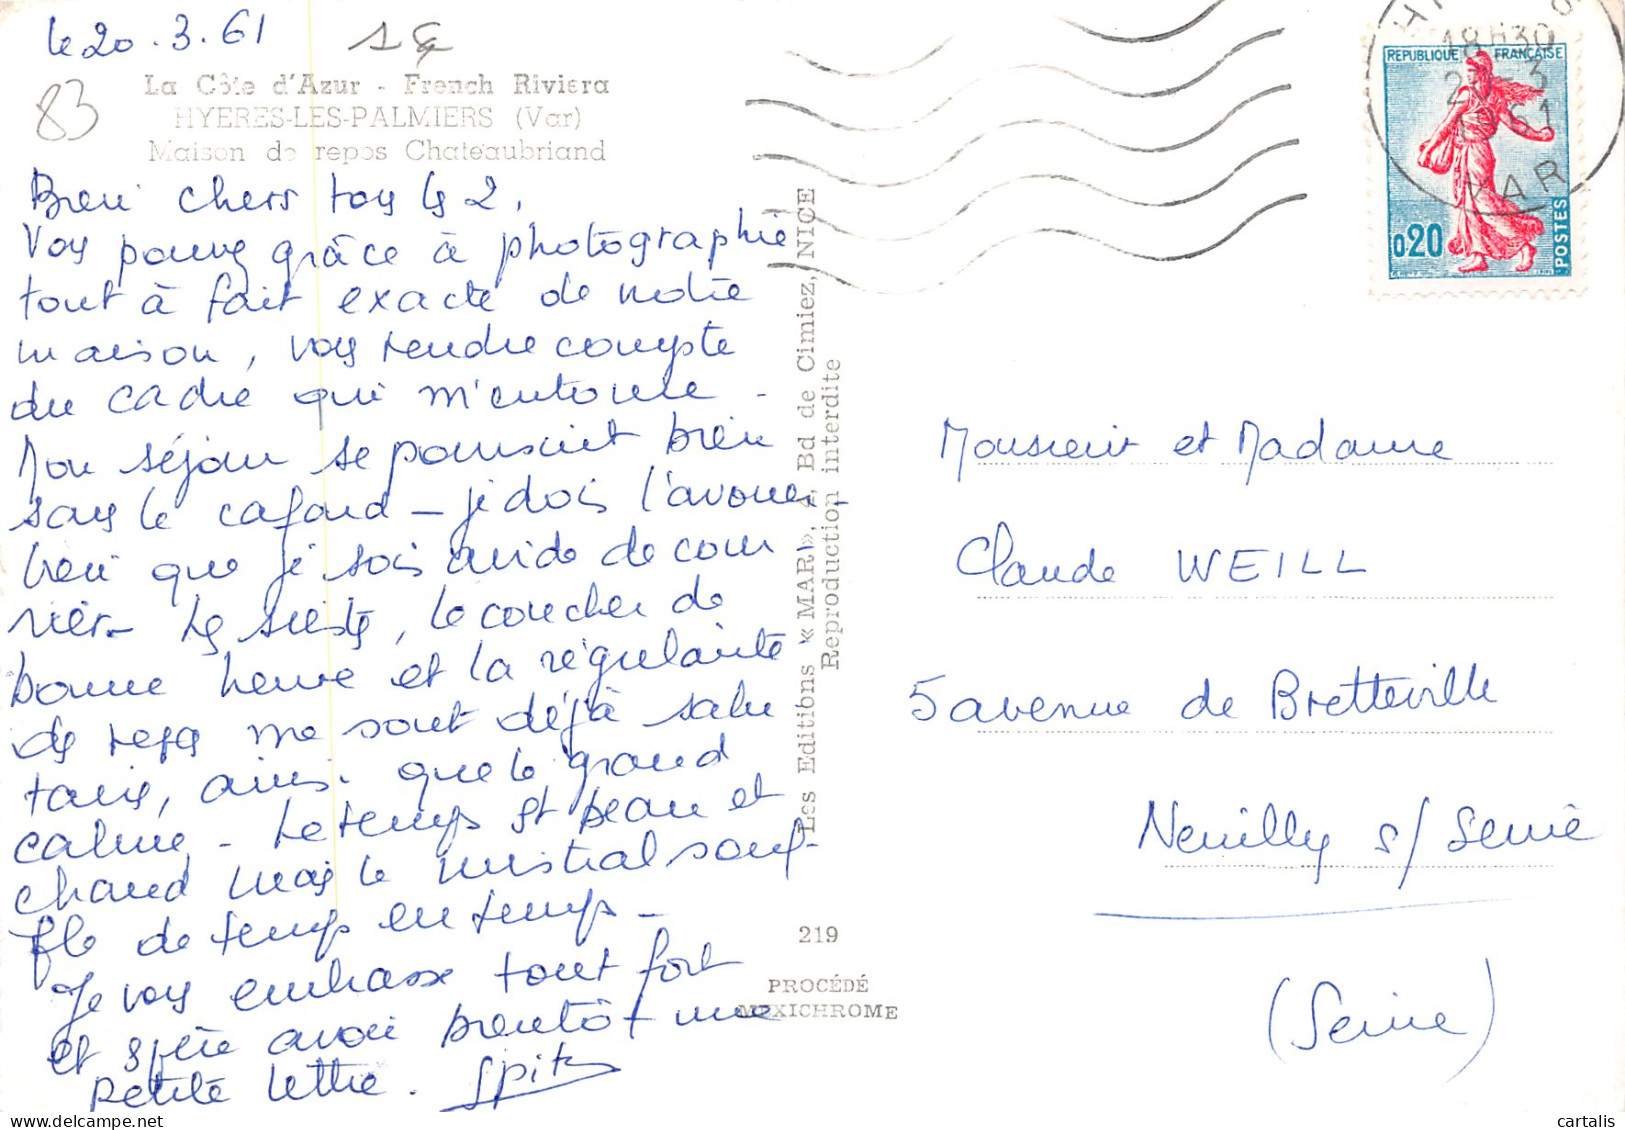 le 20.3.61
1 €
83
La Côte d'Azur - French Riviera
HYERES-LES-PALMIERS (Var)
Maison de repos Chateaubriand
Bien chers tous les 2,
Vous pouvez grâce à photographie
tout à fait exacte de notre
maison, vous rendre compte
du cadre qui m'entoure.
Mon séjour se poursuit bien
sans le cafard - je dois l'avouer -
bien que je sois avide de cour
rier. La sieste, le coucher de
bonne heure et la régularité
des repas me sont déjà salu
taires, ainsi que le grand
calme. Le temps est beau et
chaud mais le mistral souf-
fle de temps en temps -
Je vous embrasse tout fort
et espère avoir bientôt une
petite lettre. Spitz
Les Editions «MAR», 4, Bd de Cimiez, NICE
Reproduction interdite
219
PROCÉDÉ
MEXICHROME
18H30
3
1961
VAR
REPUBLIQUE FRANÇAISE
0,20
POSTES
Monsieur et Madame
Claude WEILL
5 avenue de Bretteville
Neuilly s/ Seine
(Seine)
cartalis